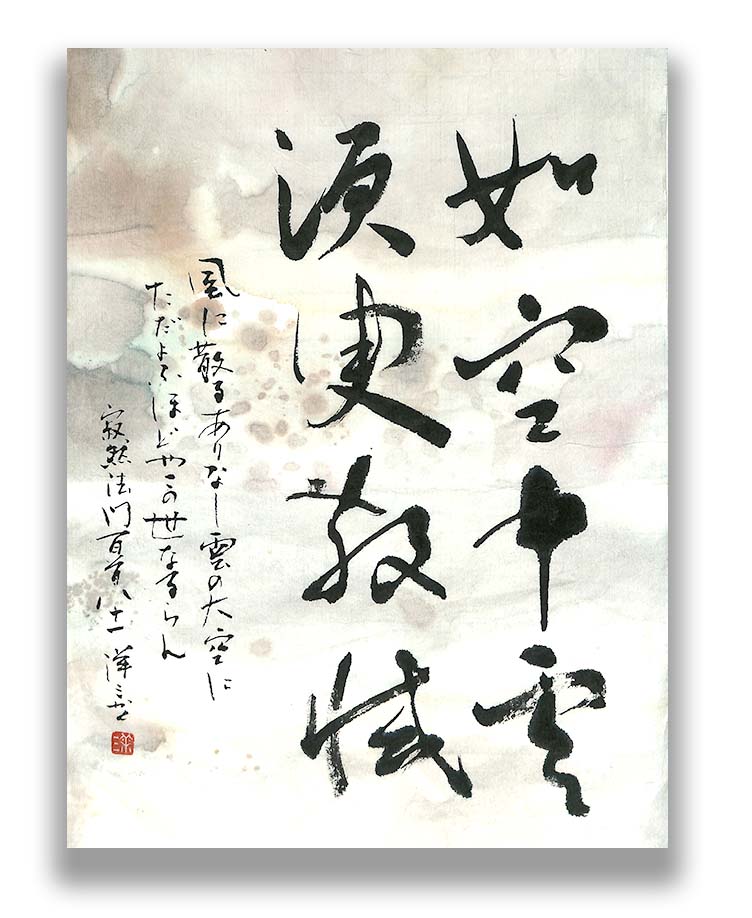 如空中雲
須臾散滅
風に散るありなし雲の大空に
ただよふほどやこの世なるらん
寂然法門百首八十一 洋